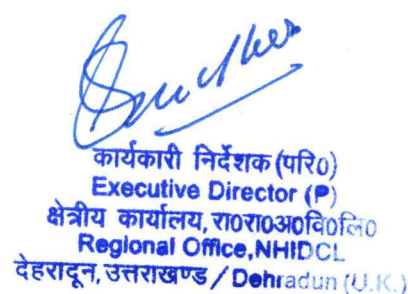 कार्यकारी निर्देशक (परि0)
Executive Director (P)
क्षेत्रीय कार्यालय, रा0रा0अ0वि0लि0
Regional Office, NHIDCL
देहरादून, उत्तराखण्ड / Dehradun (U.K.)